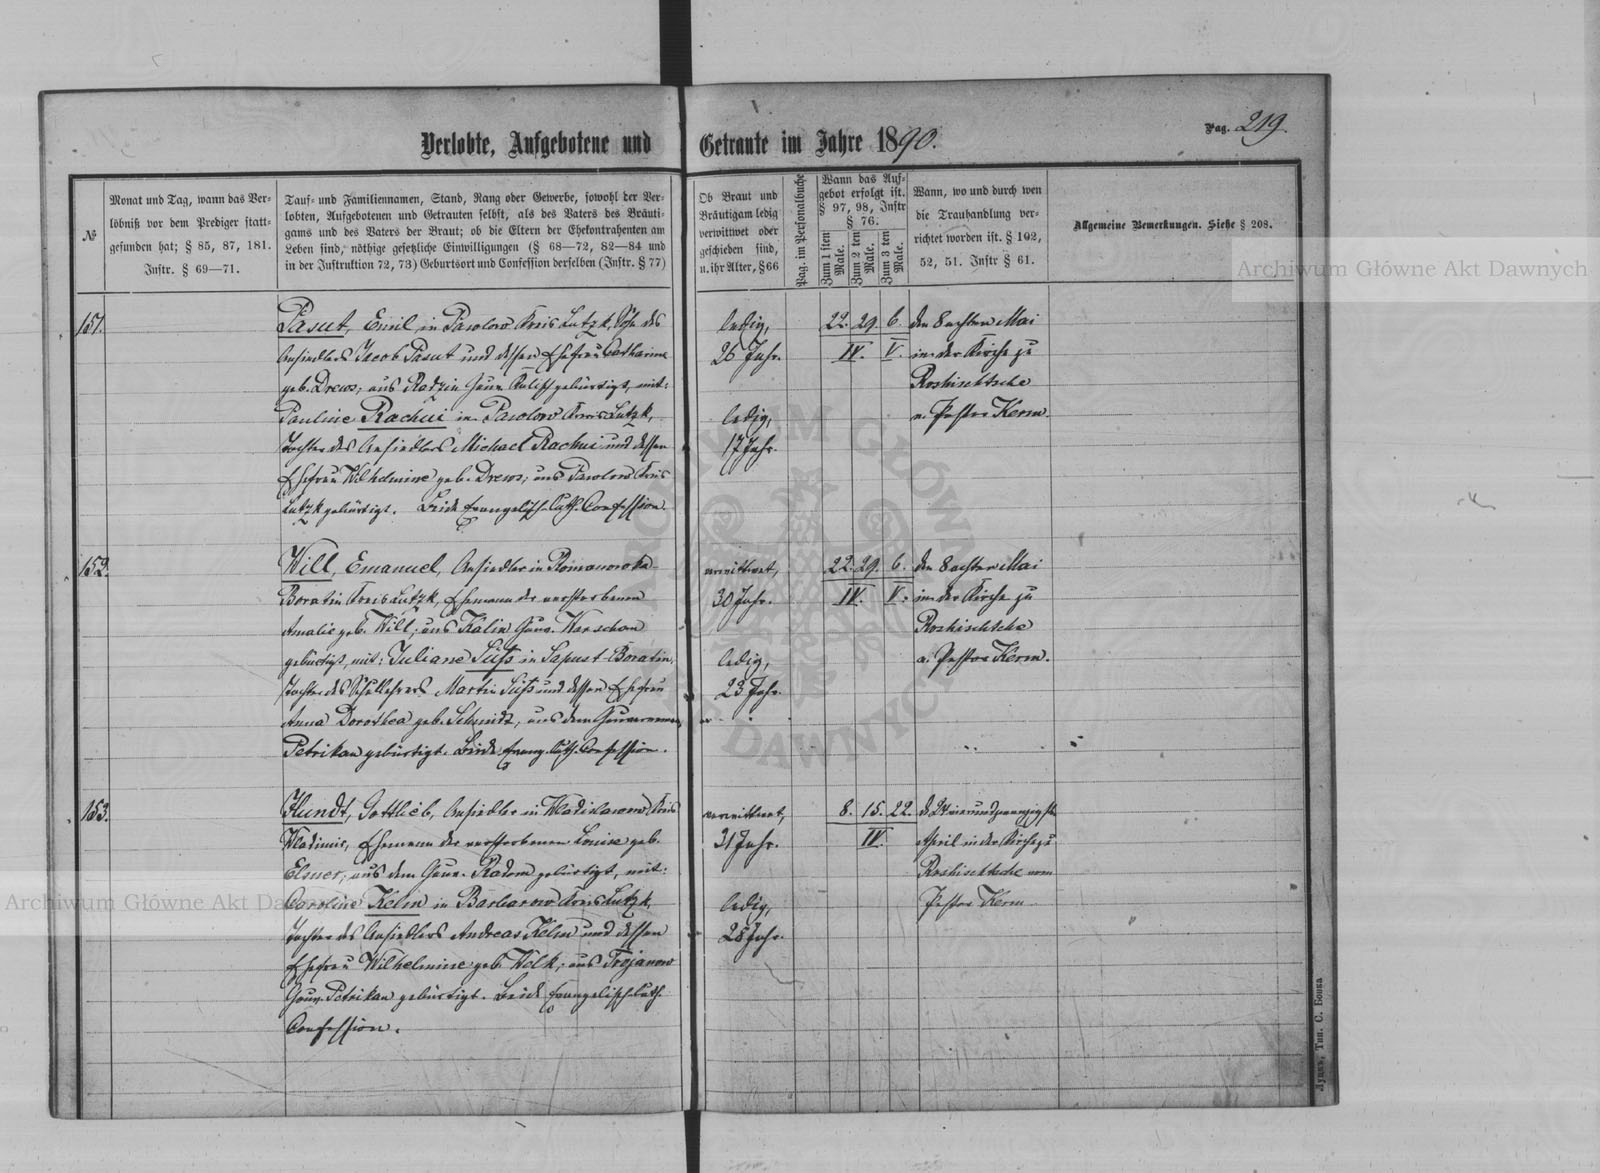 Pag. 219.
Verlobte, Aufgebotene und Getraute im Jahre 1890.
№
Monat und Tag, wann das Ver-
löbniß vor dem Prediger statt-
gefunden hat; § 85, 87, 181.
Instr. § 69—71.
Tauf- und Familiennamen, Stand, Rang oder Gewerbe, sowohl der Ver-
lobten, Aufgebotenen und Getrauten selbst, als des Vaters des Bräuti-
gams und des Vaters der Braut; ob die Eltern der Ehekontrahenten am
Leben sind, nöthige gesetzliche Einwilligungen (§ 68—72, 82—84 und
in der Instruktion 72, 73) Geburtsort und Confession derselben (Instr. § 77)
Ob Braut und
Bräutigam ledig
verwittwet oder
geschieden sind,
u. ihr Alter, § 66
Pag. im Personalbuche
Wann das Auf-
gebot erfolgt ist.
§ 97, 98, Instr
§ 76.
Zum 1 sten Male.
Zum 2 ten Male.
Zum 3 ten Male.
Wann, wo und durch wen
die Trauhandlung ver-
richtet worden ist. § 102,
52, 51. Instr § 61.
Allgemeine Bemerkungen. Siehe § 208.
151.
Pasut, Emil, in Pawlow Kreis Lutzk, Sohn des
Ansiedlers Jacob Pasut und dessen Ehefrau Catharine
geb. Drews; aus Radzin Gouv. Kalisch gebürtigt, mit:
Pauline Rachui in Pawlow Kreis Lutzk,
Tochter des Ansiedlers Michael Rachui und dessen
Ehefrau Wilhelmine geb. Drews; aus Pawlow Kreis
Lutzk gebürtigt. Beide Evangelisch-Luth. Confession
ledig,
26 Jahr.
ledig,
17 Jahr.
22. 29. 6.
IV. V.
den 8 achten Mai
in der Kirche zu
Roshischtsche
v. Pastor Kerm.
152.
Will, Emanuel, Ansiedler in Romanowka-
Boratin Kreis Lutzk, Ehemann der verstorbenen
Amalie geb. Will; aus Kalin Gouv. Warschau
gebürtigt, mit: Juliane Süß in Sapust-Boratin,
Tochter des Schullehrers Martin Süß und dessen Ehefrau
Anna Dorothea geb. Schmidt, aus dem Gouvernement
Petrikau gebürtigt. Beide Evang. Luth. Confession.
verwittwet,
30 Jahr.
ledig,
23 Jahr.
22. 29. 6.
IV. V.
den 8 achten Mai
in der Kirche zu
Roshischtsche
v. Pastor Kerm.
153.
Hundt, Gottlieb, Ansiedler in Wladislawow Kreis
Wladimir, Ehemann der verstorbenen Louise geb.
Elsner; aus dem Gouv. Radom gebürtigt, mit:
Caroline Kelm in Barbarow Kreis Lutzk,
Tochter des Ansiedlers Andreas Kelm und dessen
Ehefrau Wilhelmine geb. Wolk; aus Trojanow
Gouv. Petrikau gebürtigt. Beide Evangelisch-Luth.
Confession.
verwittwet,
31 Jahr.
ledig,
28 Jahr.
8. 15. 22.
IV.
d. 24 vierundzwanzigsten
April in der Kirche zu
Roshischtsche vom
Pastor Kerm
Луцкъ, Тип. С. Бокка
Archiwum Główne Akt Dawnych
Archiwum Główne Akt Dawnych
ARCHIWUM GŁÓWNE AKT DAWNYCH